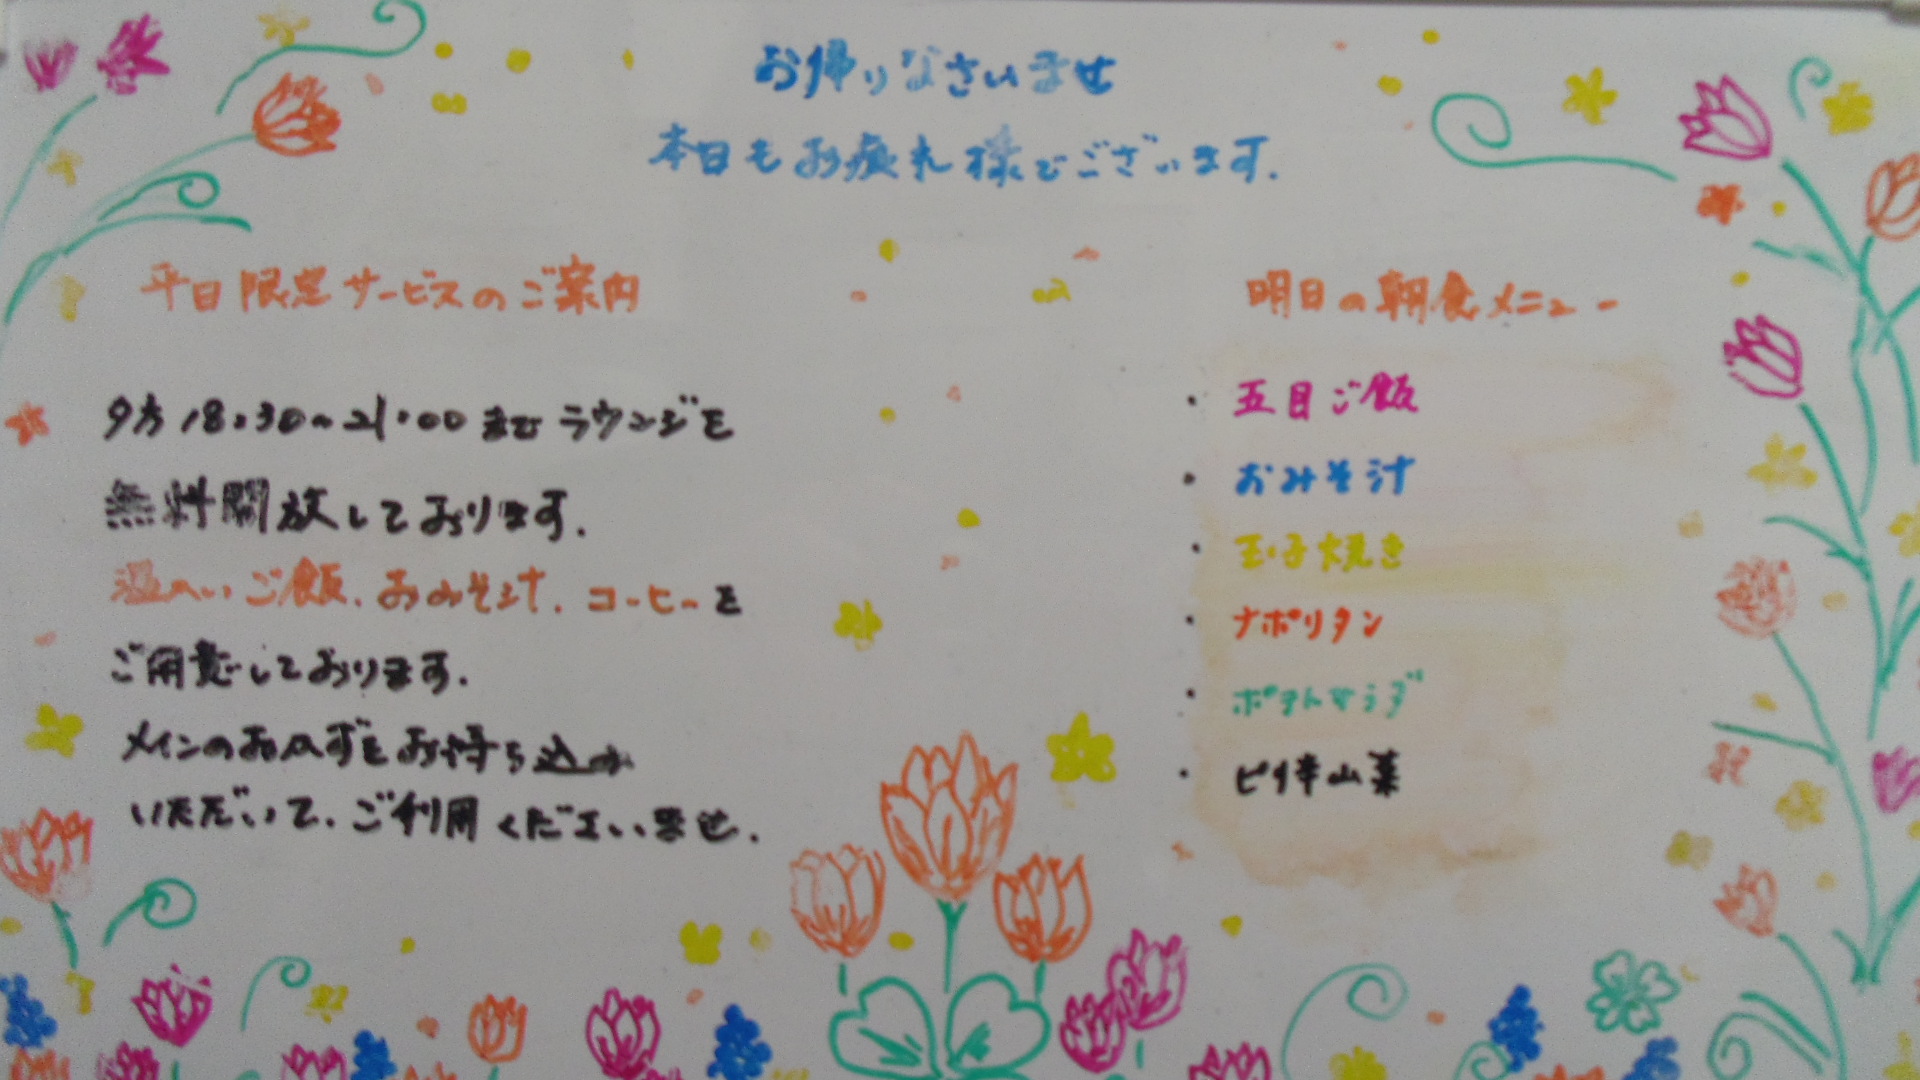 お帰りなさいませ
本日もお疲れ様でございます.
平日限定サービスのご案内
夕方 18:30~21:00 まで ラウンジを
無料開放しております.
温かいご飯.おみそ汁.コーヒーを
ご用意しております.
メインのおかずをお持ち込み
いただいて.ご利用くださいませ.
明日の朝食メニュー
・五目ご飯
・おみそ汁
・玉子焼き
・ナポリタン
・ポテトサラダ
・ピリ辛山菜